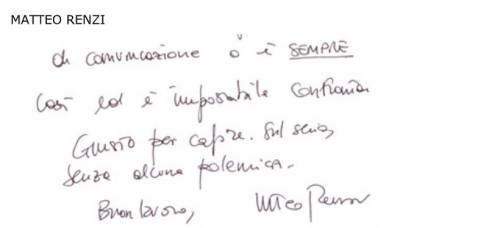 MATTEO RENZI
di comunicazione o è SEMPRE
così ed è impossibile
Giusto per capire. Sul serio,
senza alcuna polemica.
Buon lavoro, Matteo Renzi